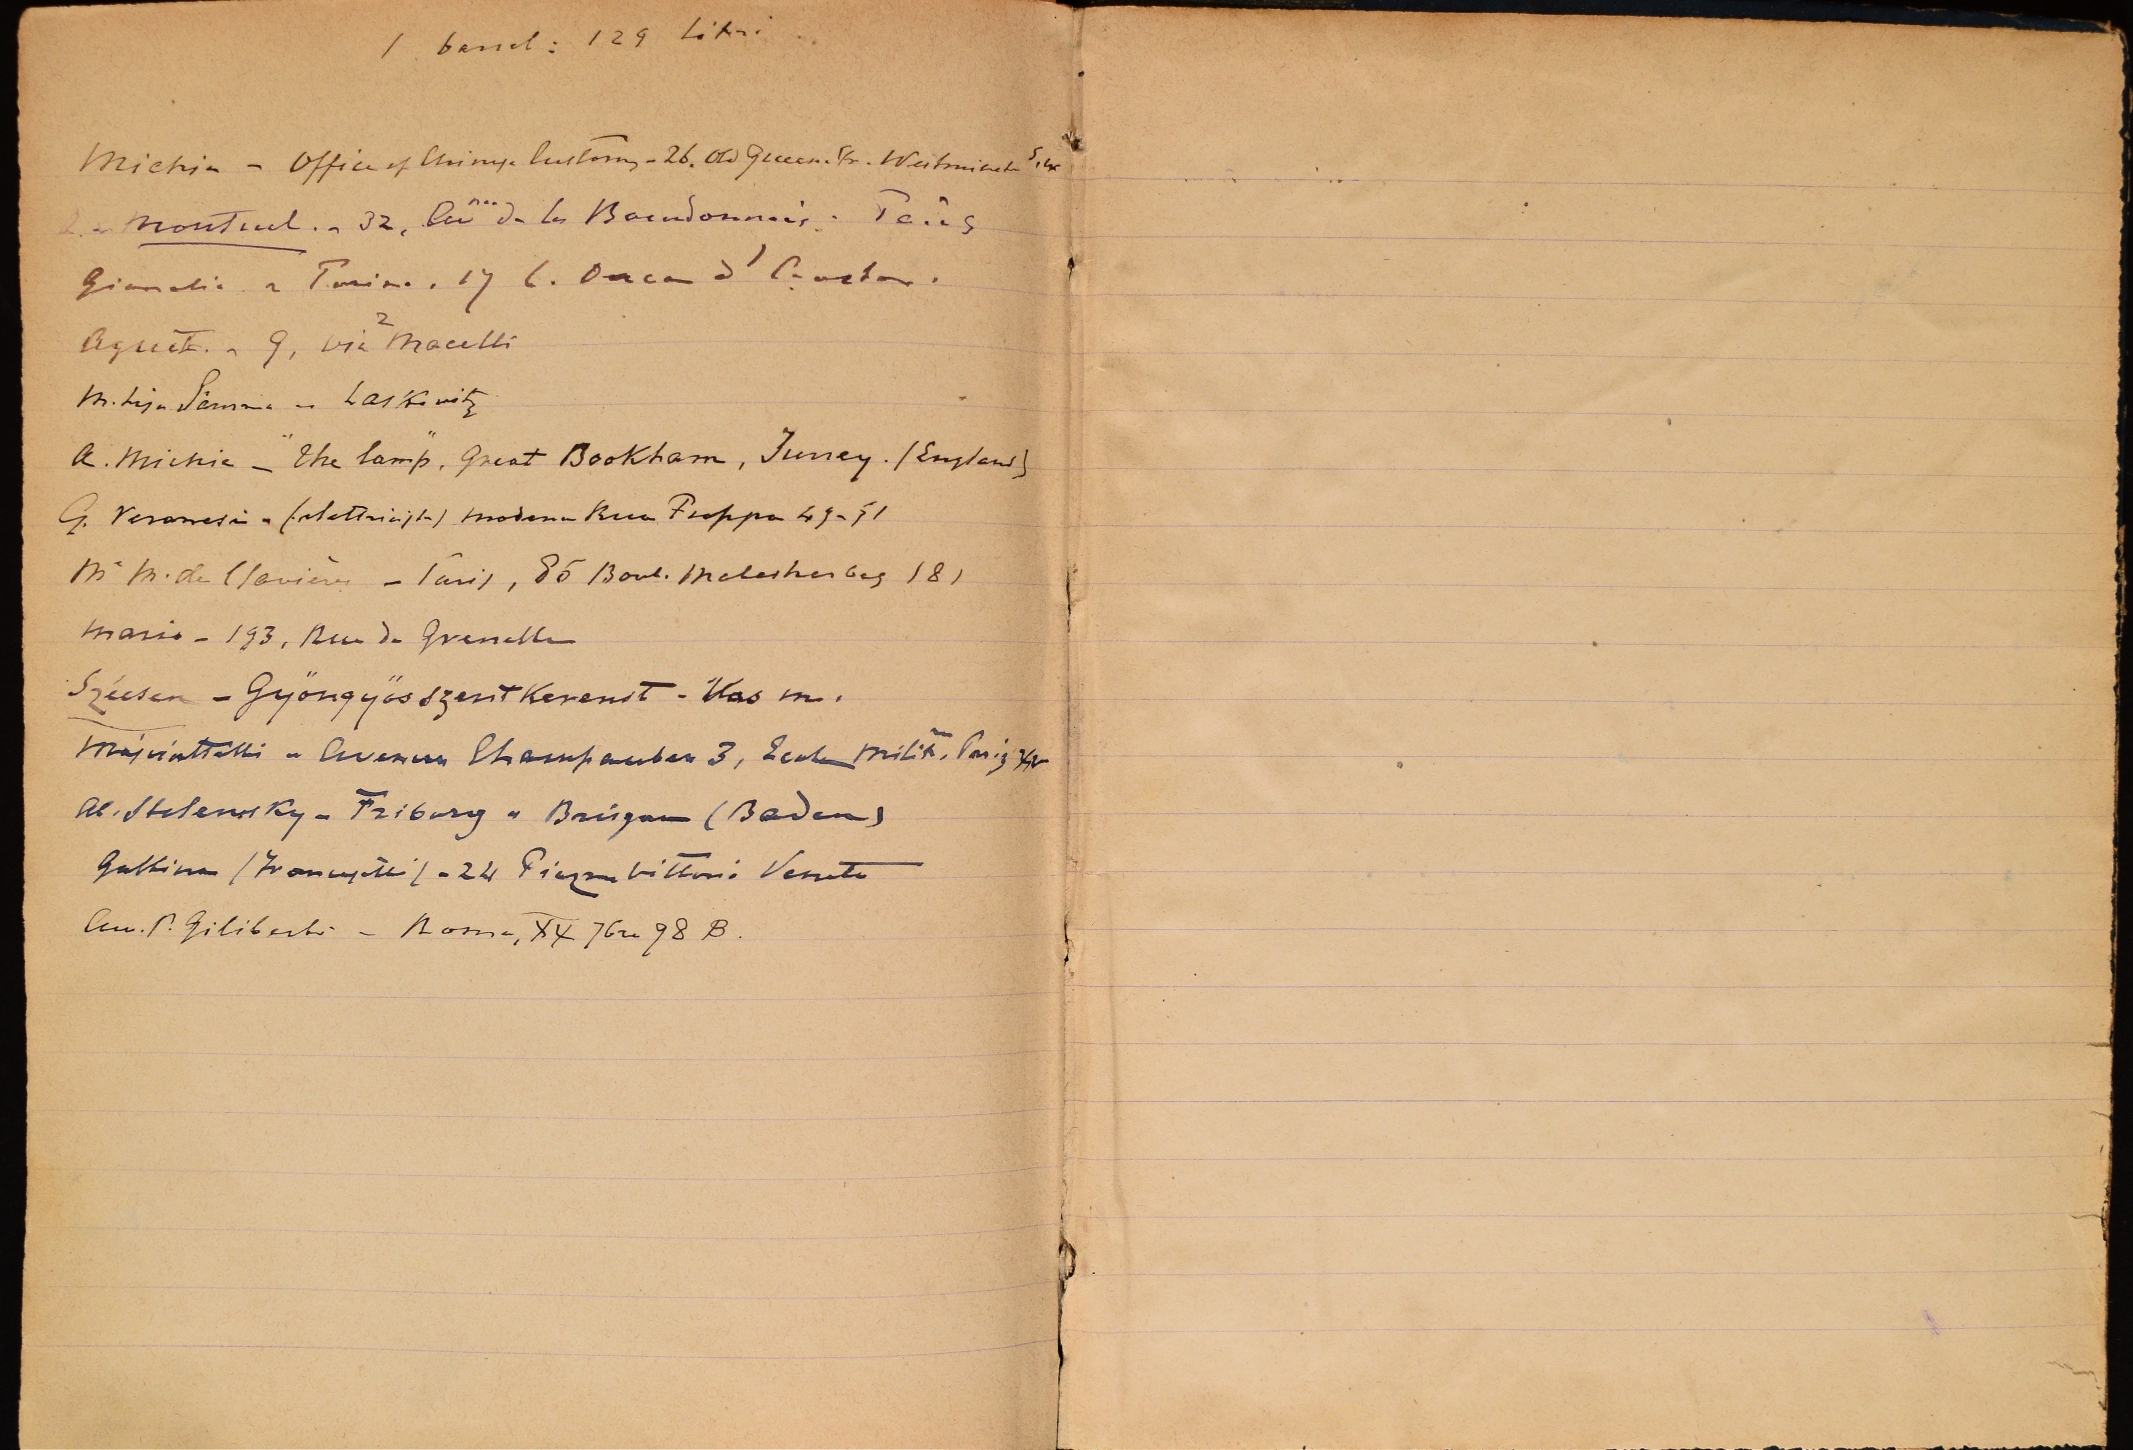 1 barrel: 129 litri
Michie - Office of Chinese Customs - 26. Old Queen. Str. Westminster S.W
Montuel. - 32, de la Bourdonnais. Paris
Torino. 17 C. Duca d'Aosta.
9, via 2 Macelli
Laskovitz
A. Michie - "The lamp", Great Bookham, Surrey. (England)
G. Veronesi - (elettricista) Modena Rua Freppa 49-51
M. de Clavière - Paris, 85 Boul. Malesherbes (8)
Mario - 193, Rue de Grenelle
Szécsen - Gyöngyösszentkereszt - Vas m.
Avenue Champaubert 3, Ecole Militre. Paris XV
Friburg - Brisgau (Baden)
Gallina (Francesetti) - 24 Piazza Vittorio Veneto
P. Giliberti - Roma, XX 7bre 98 B.